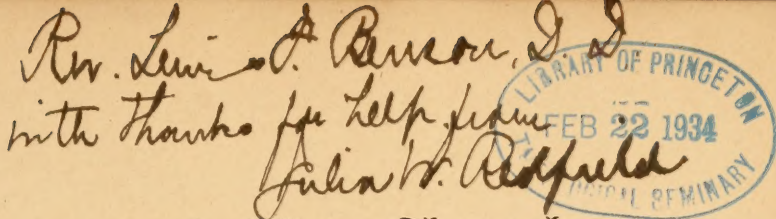 Rev. Louis F. Benson, D.D
with thanks for help from
Julia W. Redfield
LIBRARY OF PRINCETON
FEB 22 1934
THEOLOGICAL SEMINARY